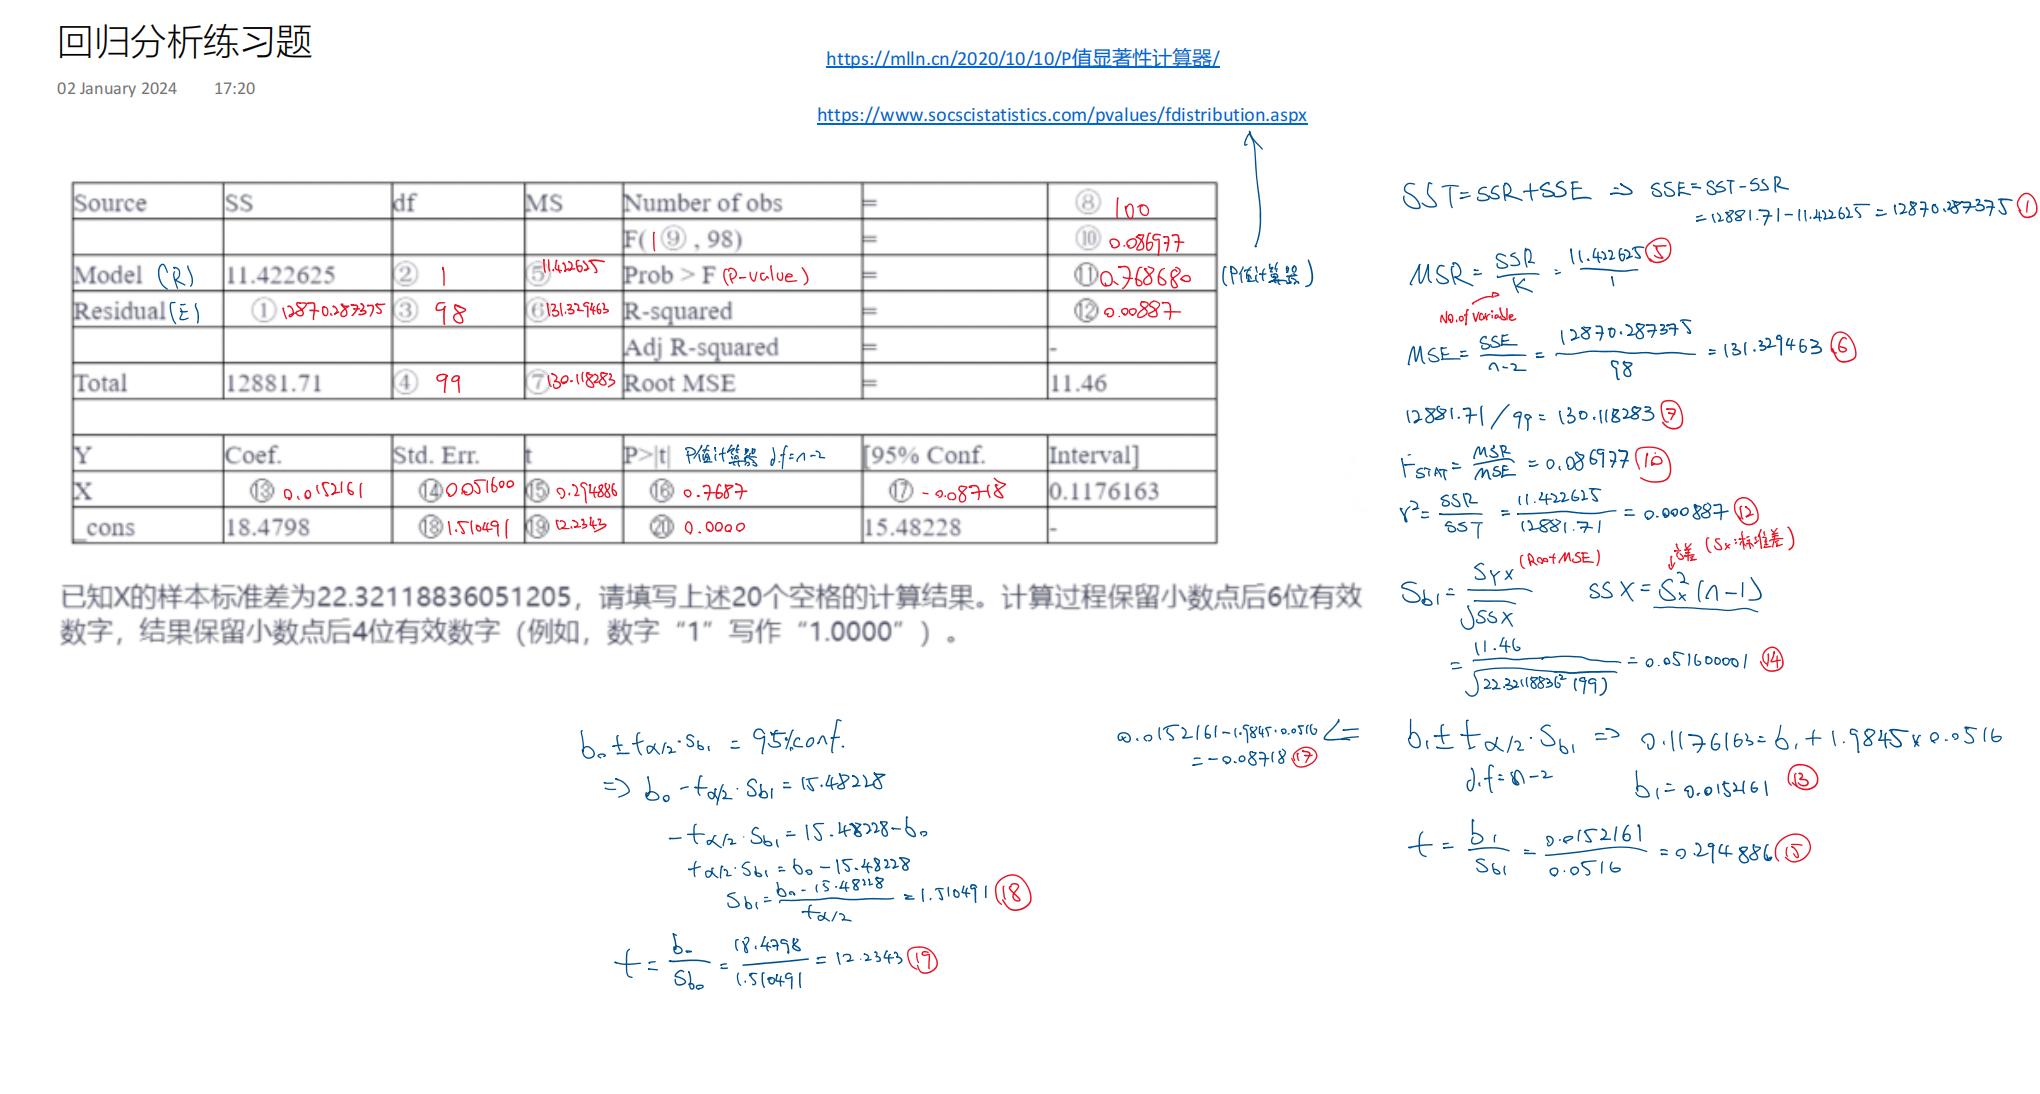 回归分析练习题
02 January 2024 17:20
https://mlln.cn/2020/10/10/P值显著性计算器/
https://www.socscistatistics.com/pvalues/fdistribution.aspx
Source SS df MS Number of obs = ⑧ 100
F(1⑨, 98) = ⑩ 0.086977
Model (R) 11.422625 ② 1 ⑤11.422625 Prob > F (P-value) = ⑪0.768680 (P值计算器)
Residual(E) ①12870.287375 ③ 98 ⑥131.329463 R-squared = ⑫0.00887
Adj R-squared = -
Total 12881.71 ④ 99 ⑦130.118283 Root MSE = 11.46
Y Coef. Std. Err. t P>|t| P值计算器 d.f=n-2 [95% Conf. Interval]
X ⑬ 0.0152161 ⑭0.051600 ⑮ 0.294886 ⑯ 0.7687 ⑰ -0.08718 0.1176163
_cons 18.4798 ⑱1.510491 ⑲ 12.2343 ⑳ 0.0000 15.48228 -
已知X的样本标准差为22.32118836051205，请填写上述20个空格的计算结果。计算过程保留小数点后6位有效
数字，结果保留小数点后4位有效数字（例如，数字“1”写作“1.0000”）。
SST=SSR+SSE ⇒ SSE=SST-SSR
=12881.71-11.422625=12870.287375 ①
MSR= SSR/K = 11.422625/1 ⑤
No.of variable
MSE= SSE/n-2 = 12870.287375/98 =131.329463 ⑥
12881.71/99=130.118283 ⑦
FSTAT= MSR/MSE =0.086977 ⑩
r²= SSR/SST = 11.422625/12881.71 =0.000887 ⑫
(Root MSE) 方差 (Sx:标准差)
Sb1= SYX/√SSX SSX=Sx²(n-1)
= 11.46/√22.32118836²(99) =0.051600001 ⑭
b1±tα/2·Sb1 ⇒ 0.1176163=b1+1.9845×0.0516
d.f=n-2 b1=0.0152161 ⑬
0.0152161-1.9845·0.0516 ⇐
=-0.08718 ⑰
t= b1/Sb1 = 0.0152161/0.0516 =0.294886 ⑮
b0±tα/2·Sb1 = 95%conf.
⇒ b0-tα/2·Sb1=15.48228
-tα/2·Sb1=15.48228-b0
tα/2·Sb1=b0-15.48228
Sb1= b0-15.48228/tα/2 =1.510491 ⑱
t= b0/Sb0 = 18.4798/1.510491 =12.2343 ⑲